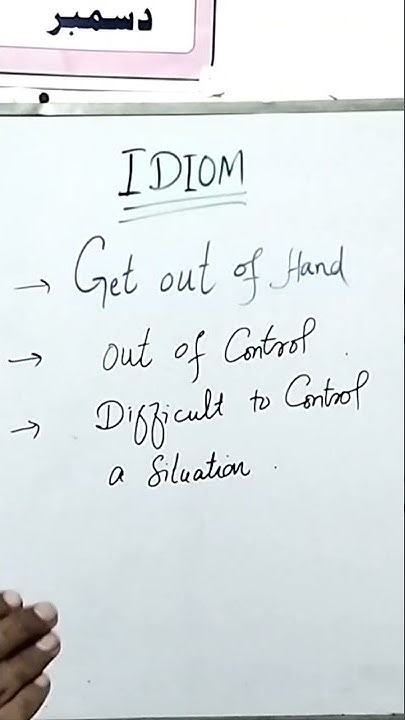 دسمبر
IDIOM
→ Get out of Hand
→ out of Control.
→ Difficult to Control
a Situation.